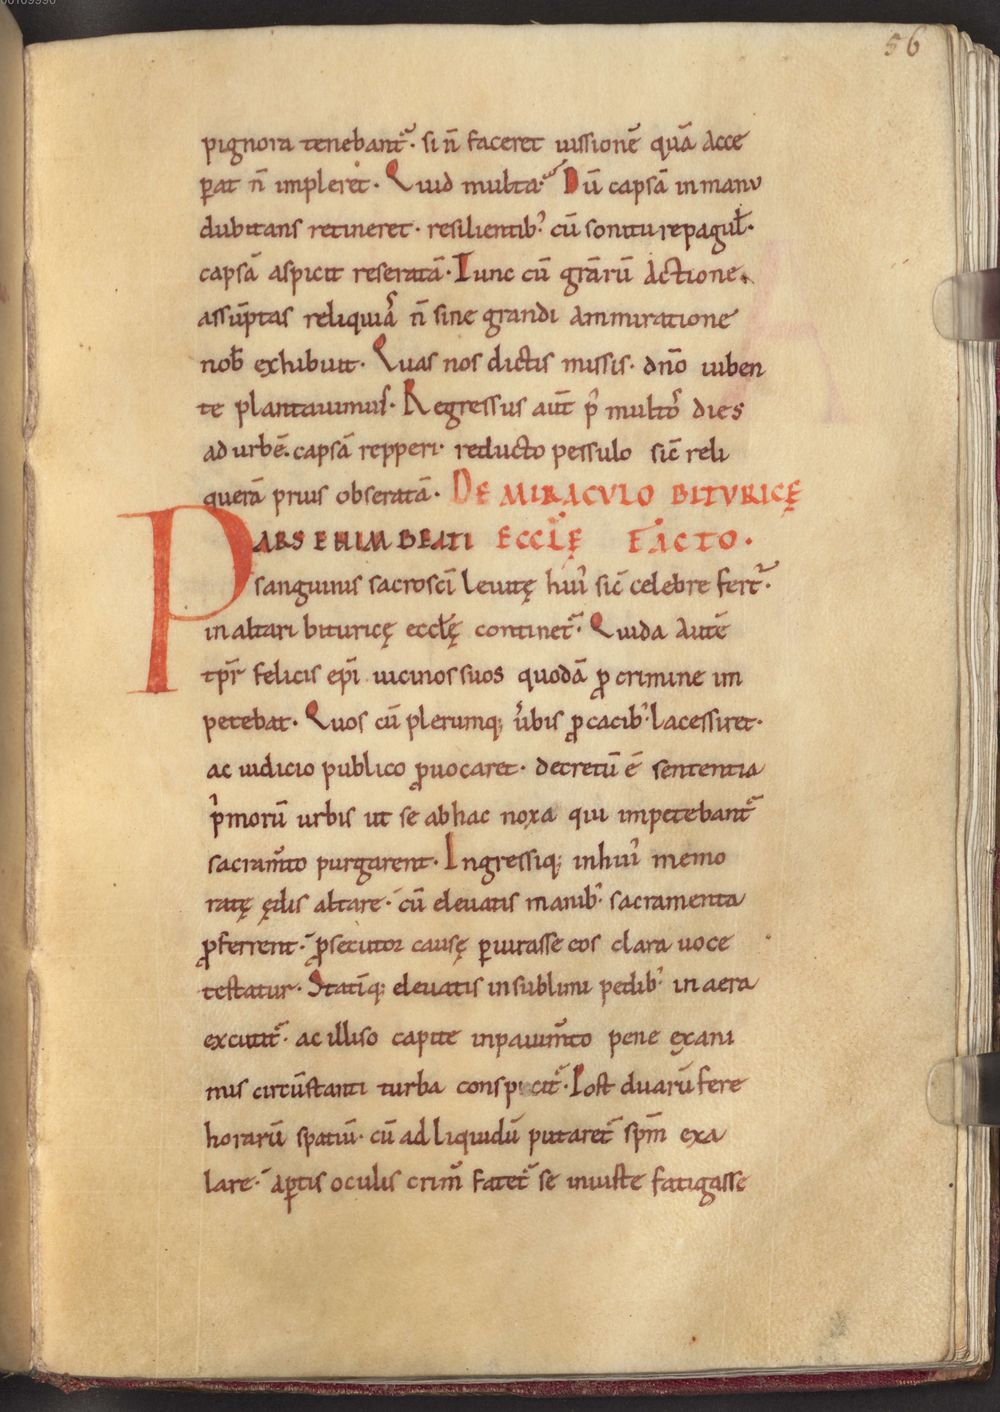 56
pignora tenebant᷑. si n̄ faceret iussionē quā acce
ꝑat n̄ impleret. Quid multa. Dū capsā in manu
dubitans retineret. resilientib᾽ cū sonitu repagul̄.
capsā aspicit reseratā. Tunc cū grārū actione.
assūptas reliquias n̄ sine grandi ammiratione
nob̄ exhibuit. Quas nos dictis missis. dn̄o iuben
te plantauimus. Regressus aut̄ p᾽ multos dies
ad urbē. capsā repperi. reducto pessulo sic̄ reli
querā prius obseratā. DE MIRACVLO BITVRICĘ
PARS ENIM BEATI ECCLĘ FACTO.
sanguinis sacrosc̄i leuitę hui᾽ sic̄ celebre fert᷑.
in altari bituricę eccl̄ę continet᷑. Quida autē
tp̄r felicis ep̄i uicinos suos quodā ꝓ crimine im
petebat. Quos cū plerumq; u᾽bis ꝓcacib᾽ lacessiret.
ac iudicio publico ꝓuocaret. decretū ē sententia
p᾽morū urbis ut se ab hac noxa qui impetebant᷑
sacram̄to purgarent. Ingressiq; in hui᾽ memo
ratę ędis altare. cū eleuatis manib᾽ sacramenta
ꝓferrent. ꝓsecutor causę ꝑiurasse eos clara uoce
testatur. Statīq; eleuatis in sublimi pedib᾽ in aera
excutit᷑. ac illiso capite in pauim̄to pene exani
mis circūstanti turba conspicit᷑. Post duarū fere
horarū spatiū. cū ad liquidū putaret᷑ sp̄m exa
lare. aꝑtis oculis crim̄ fatet᷑ se iniuste fatigasse